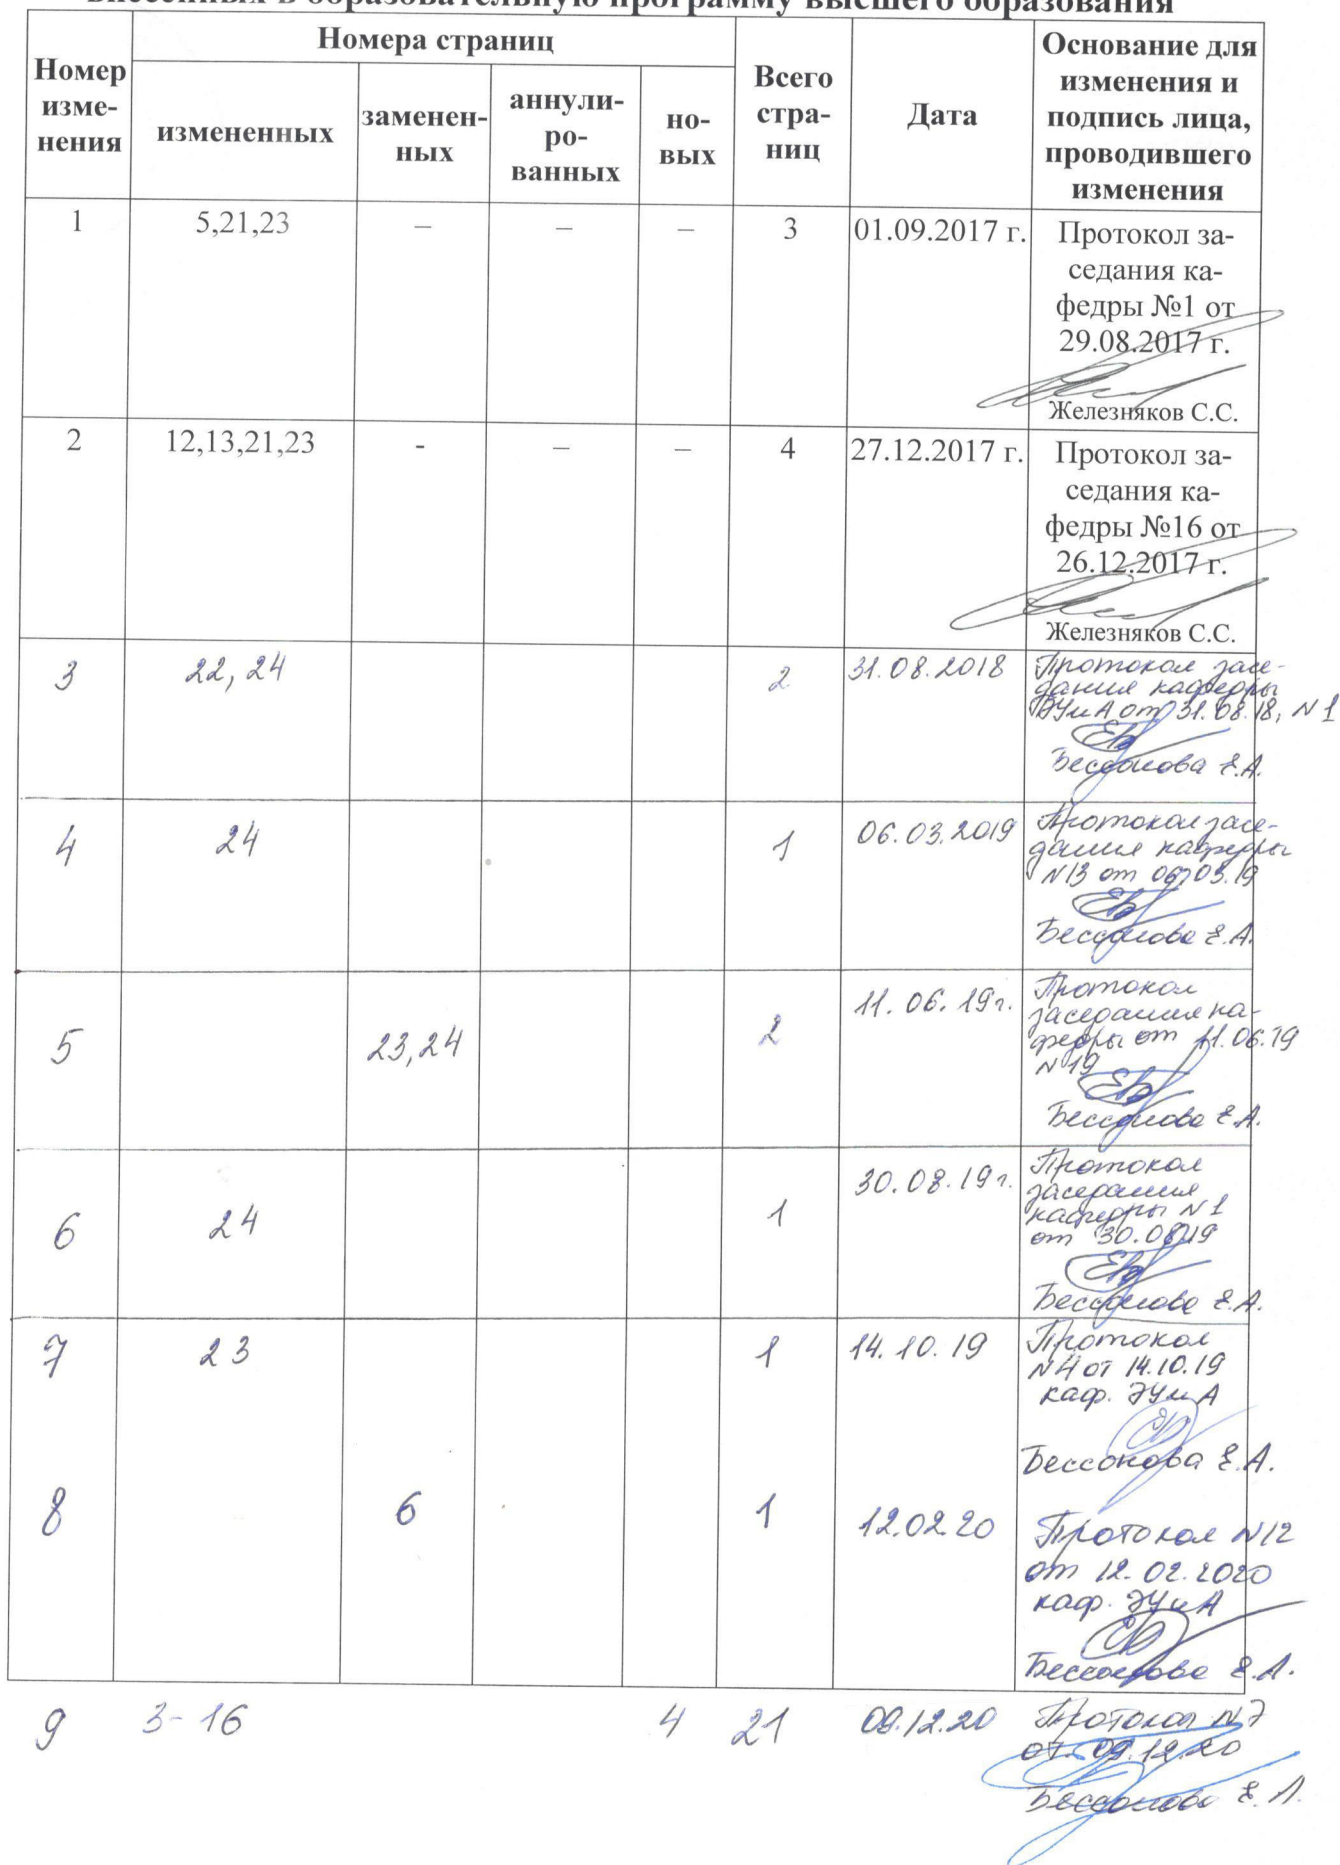 внесенных в образовательную программу высшего образования
Номер изме-нения
Номера страниц
измененных
заменен-ных
аннули-ро-ванных
но-вых
Всего стра-ниц
Дата
Основание для
изменения и
подпись лица,
проводившего
изменения
1 5,21,23 – – – 3 01.09.2017 г. Протокол за-
седания ка-
федры №1 от
29.08.2017 г.
Железняков С.С.
2 12,13,21,23 - – – 4 27.12.2017 г. Протокол за-
седания ка-
федры №16 от
26.12.2017 г.
Железняков С.С.
3 22, 24 2 31.08.2018 Протокол засе-
дания кафедры
ЭУиА от 31.08.18, N 1
Бессонова Е.А.
4 24 1 06.03.2019 Протокол засе-
дания кафедры
N13 от 06.03.19
Бессонова Е.А.
5 23,24 2 11.06.19г. Протокол
заседания ка-
федры от 11.06.19
N19
Бессонова Е.А.
6 24 1 30.08.19г. Протокол
заседания
кафедры N1
от 30.08.19
Бессонова Е.А.
7 23 1 14.10.19 Протокол
N4 от 14.10.19
каф. ЭУиА
Бессонова Е.А.
8 6 1 12.02.20 Протокол N12
от 12.02.2020
каф. ЭУиА
Бессонова Е.А.
9 3-16 4 21 09.12.20 Протокол N7
от 09.12.20
Бессонова Е.А.